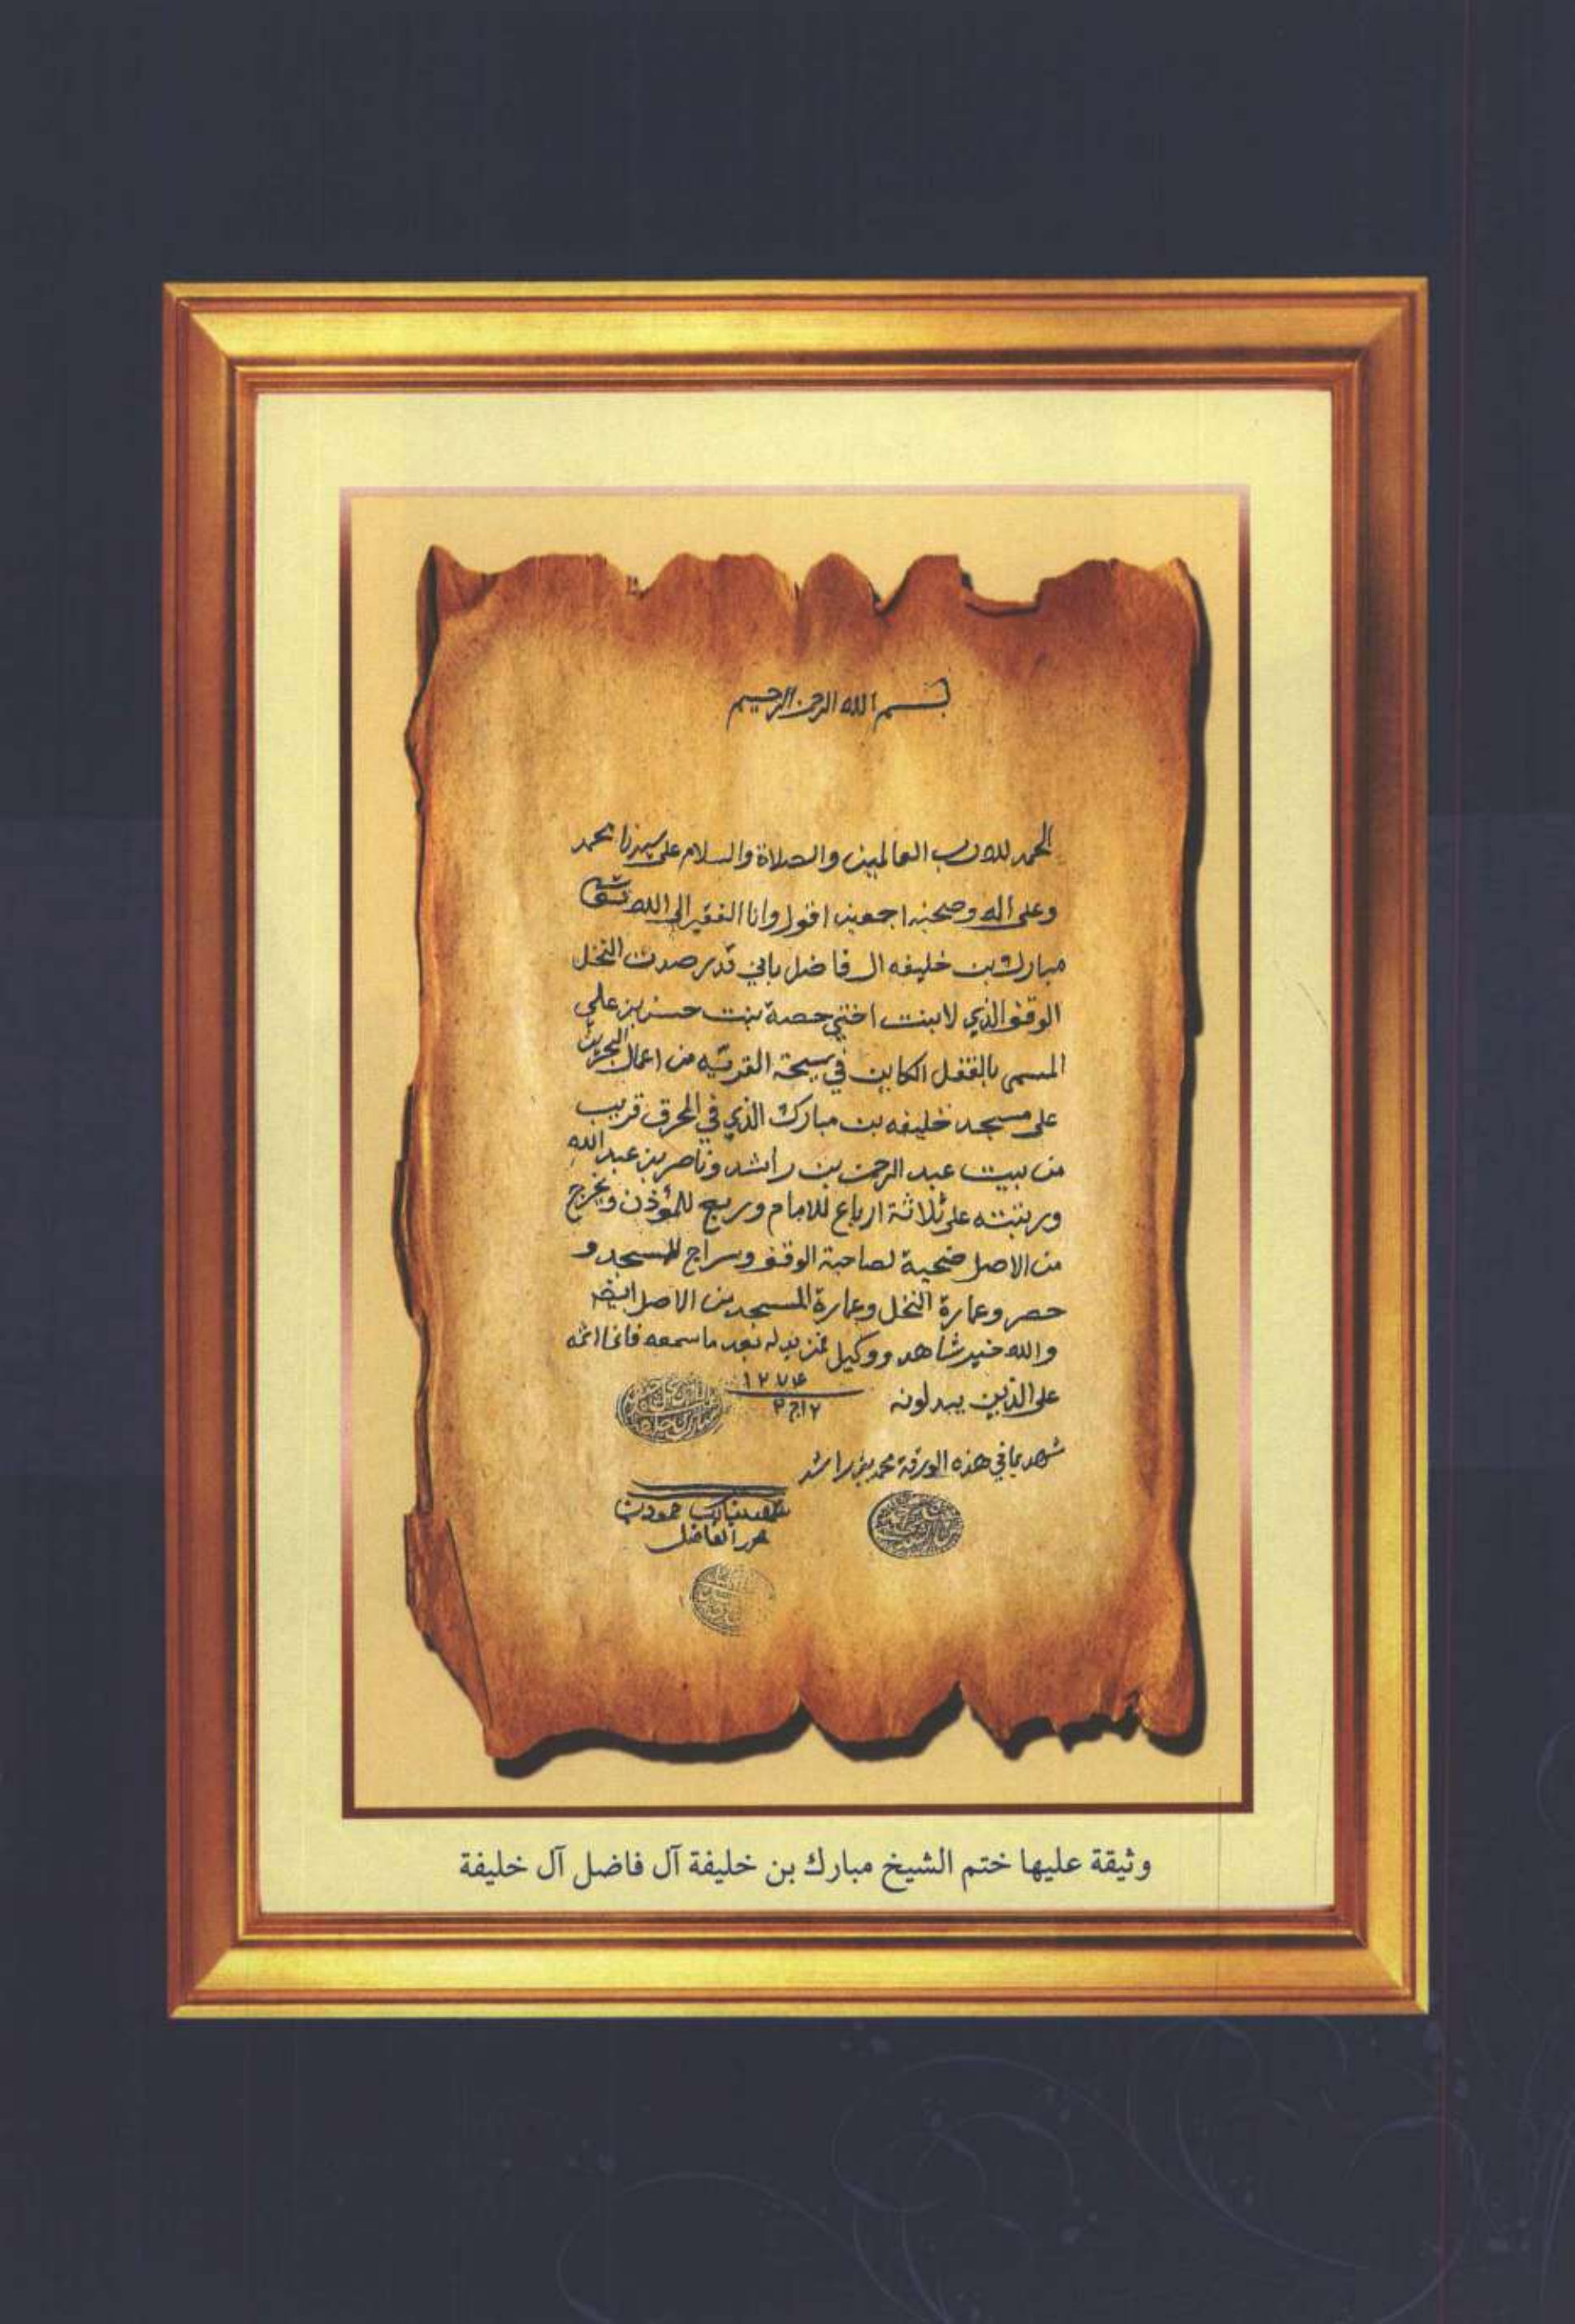 بسم الله الرحمن الرحيم
الحمد لله رب العالمين والصلاة والسلام على سيدنا محمد
وعلى اله وصحبه اجمعين اقول وانا الفقير الى الله
مبارك بن خليفه ال فاضل باني قد رصدت النخل
الوقف الذي لابنت اختي حصة بنت حسن بن علي
المسمى بالقفل الكاين في سيحة القريه من اعمال البحرين
على مسجد خليفه بن مبارك الذي في المحرق قريب
من بيت عبد الرحمن بن راشد وناصر بن عبد الله
ورتبته على ثلاثة ارباع للامام وربع للمؤذن ويخرج
من الاصل ضحية لصاحبة الوقف وسراج للمسجد و
حصر وعمارة النخل وعمارة المسجد من الاصل ايضه
والله خير شاهد ووكيل فمن بدله بعد ما سمعه فانما اثمه
على الذين يبدلونه ١٢٧٤
شهد بما في هذه الورقة محمد بن راشد
حمود بن
الفاضل
وثيقة عليها ختم الشيخ مبارك بن خليفة آل فاضل آل خليفة